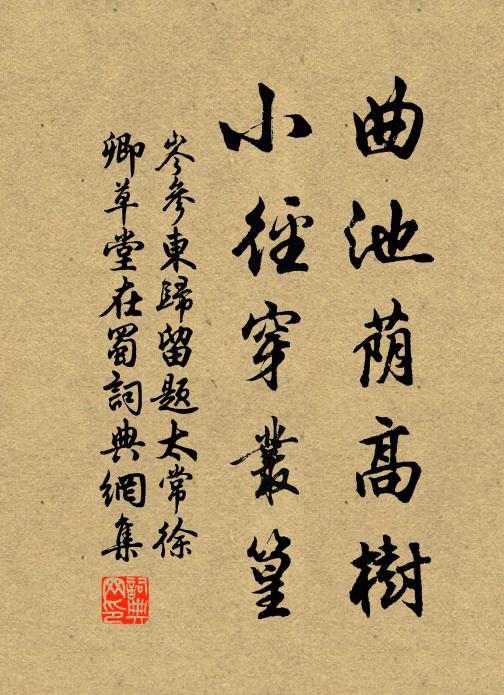 曲池荫高樹
小徑穿叢篁
岑參東歸留題太常徐
卿草堂在蜀詞典網集
詞典网印